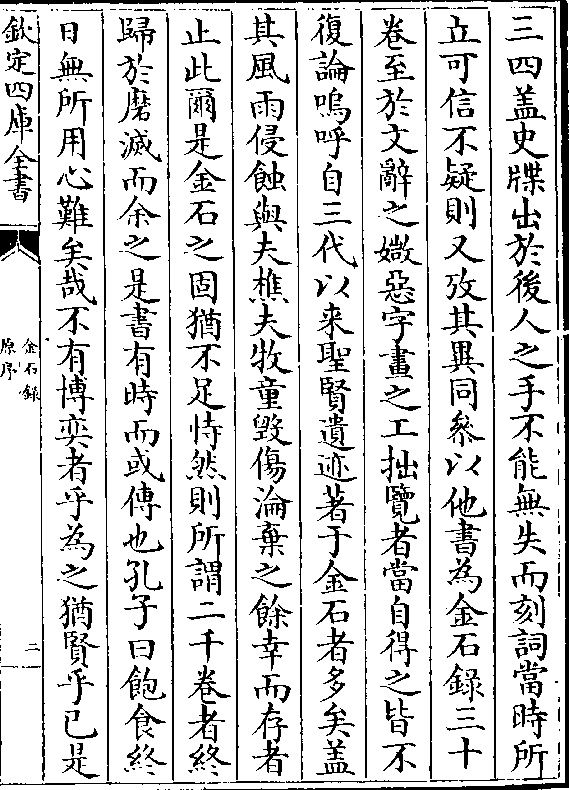 三四盖史牒出於後人之手不能無失而刻詞當時所
立可信不疑則又攷其異同叅以他書為金石錄三十
卷至於文辭之媺惡字畫之工拙覽者當自得之皆不
復論嗚呼自三代以来聖賢遺迹著于金石者多矣盖
其風雨侵蝕與夫樵夫牧童毀傷淪棄之餘幸而存者
止此爾是金石之固猶不足恃然則所謂二千卷者終
歸於磨滅而余之是書有時而或傳也孔子曰飽食終
日無所用心難矣哉不有博奕者乎為之猶賢乎已是
欽定四庫全書
金石錄
原序
二